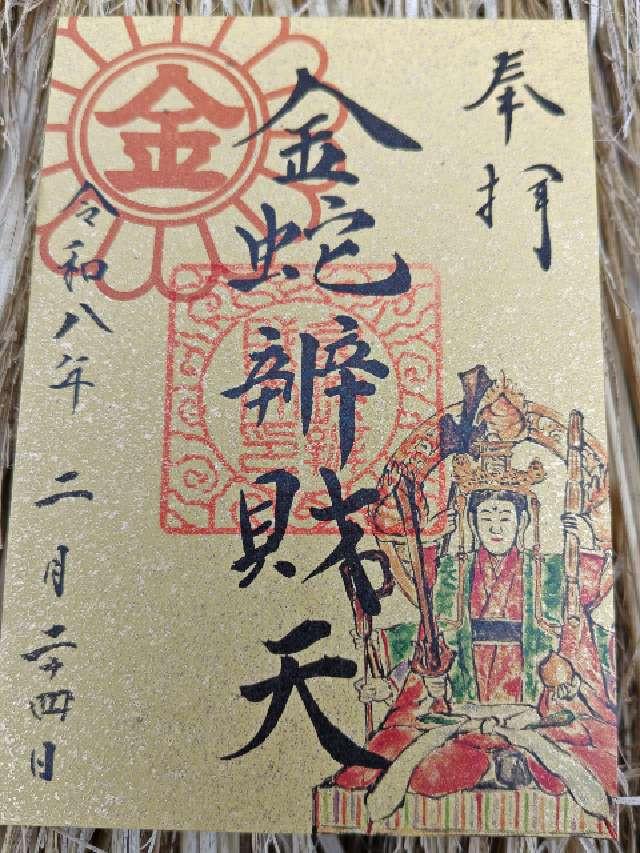 奉拝
金蛇辨財天
金
令和八年 二月二十四日